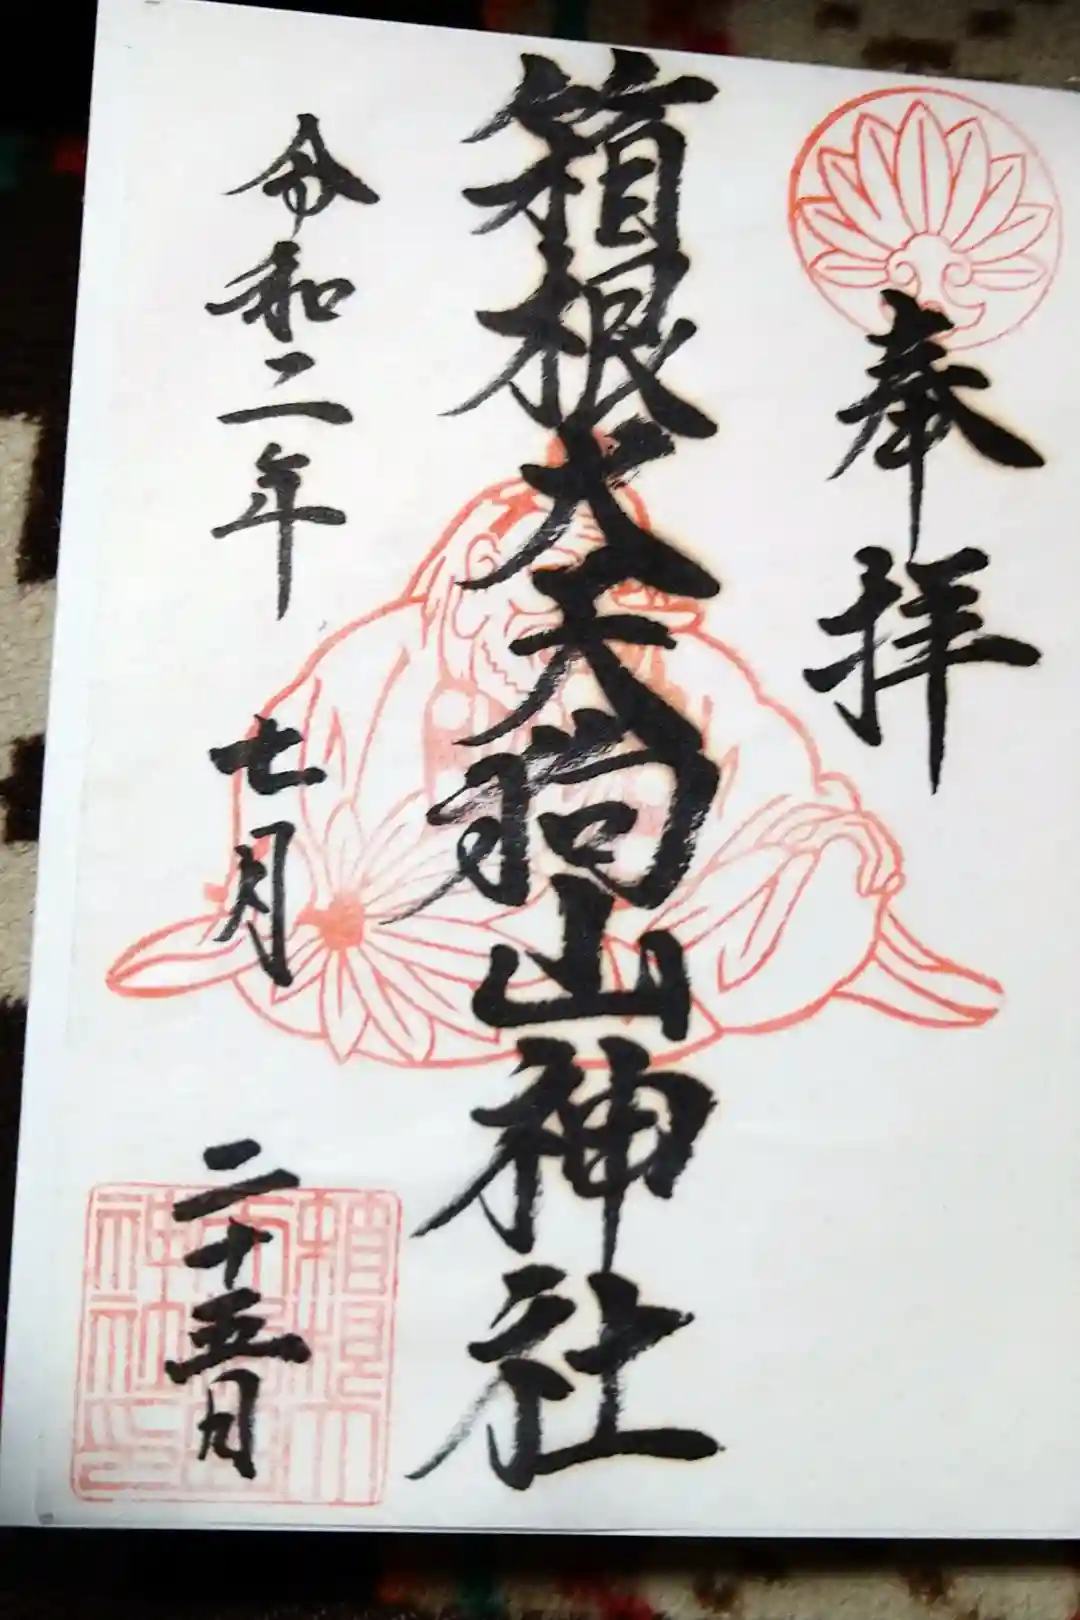 奉拝
箱根大天狗山神社
令和二年 七月 二十五日